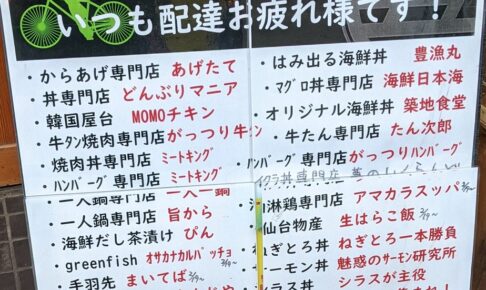 いつも配達お疲れ様です！
・からあげ専門店 あげたて
・丼専門店 どんぶりマニア
・韓国屋台 MOMOチキン
・牛タン焼肉専門店 がっつり牛タン
・焼肉丼専門店 ミートキング
・ハンバーグ専門店 ミートキング
・一人鍋専門店 一人一鍋
・一人鍋専門店 旨から
・海鮮だし茶漬け ぴん
・greenfish オサカナカルパッチョ
・手羽先 まいてば
・はみ出る海鮮丼 豊漁丸
・マグロ丼専門店 海鮮日本海
・オリジナル海鮮丼 築地食堂
・牛たん専門店 たん次郎
・ハンバーグ専門店 がっつりハンバーグ
イクラ丼専門店
淋鶏専門店 アマカラスッパ
仙台物産 生はらこ飯
ねぎとろ丼 ねぎとろ一本勝負
サーモン丼 魅惑のサーモン研究所
シラス丼 シラスが主役